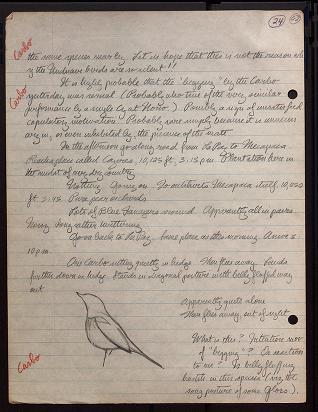 24
Carbo
the same species nearby. Let us hope that this is not the reason why
the Huanuco birds are so silent!!
Carbo
It is highly probable that the "begging" by the Carbo
yesterday was sexual (Probably also true of the very similar
performance by a single by at Honor.) Possibly a sign of unsatisfied
copulatory motivation. Probably more simply because it is immature
or even inhibited by the presence of the mate.
In the afternoon go along road from La Paz to Mecapaca
Reach a place called Cajoma, 10,125 ft, 3.15 p.m. Plantation here in
the midst of very dry country
Nothing Going on. So continue to Mecapaca itself, 10,000
ft. 3.45. Pure pear orchards
Lots of Blue Tanagers around. Apparently all in pairs
Doing long rather twittering
Go on back to La Paz. Same place as this morning. Arrive 5.
10 p.m.
One Carbo sitting quietly in hedge. Then flies away. Lands
further down in hedge. Stands in diagonal posture with belly fluffed way
out
Apparently quite alone
Then flies away, out of sight
Carbo
What is this? Imitation now
of "begging"? Or reaction
to me? Is belly fluffing
hostile in this species (viz. the
song posture of some Gloss.).